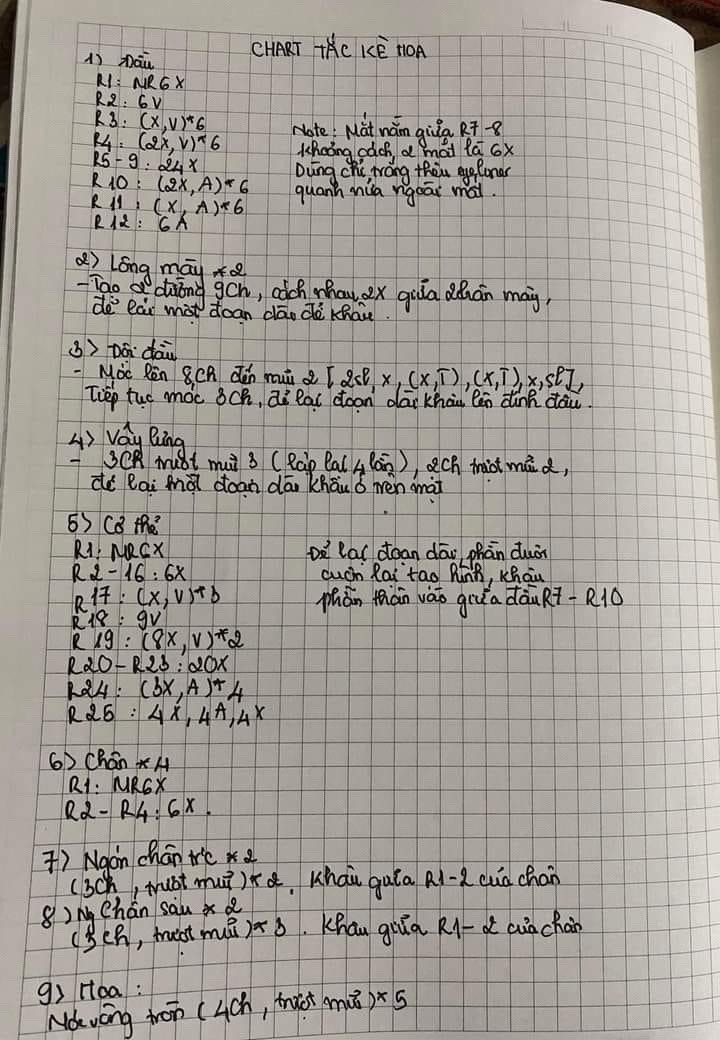 CHART TẮC KÈ HOA
1) Đầu
R1: MR6X
R2: 6V
R3: (X,V)*6
R4: (2X,V)*6
R5-9: 24X
R10: (2X,A)*6
R11: (X,A)*6
R12: 6A
Note: Mắt nằm giữa R7-8
Khoảng cách 2 mắt là 6X
Dùng chỉ trắng thêu eyeliner
quanh nửa ngoài mắt.
2> Lông mày *2
- Tạo 2 đường 9Ch, cách nhau 2X giữa 2 phần mày,
để lại một đoạn dài để khâu.
3> Đôi đầu
- Móc lên 8Ch đến mũi 2 [2sl, x, (X,T), (X,T), x, sl],
Tiếp tục móc 3Ch, để lại đoạn dài khâu lên đỉnh đầu.
4> Vây lưng
- 3Ch trượt mũi 3 (lặp lại 4 lần), 2Ch trượt mũi 2,
để lại một đoạn dài khâu ở trên mặt
5> Cơ thể
R1: MR6X
R2-16: 6X
R17: (X,V)*3
R18: 9V
R19: (8X,V)*2
R20-R23: 20X
R24: (3X,A)*4
R25: 4X, 4A, 4X
Để lại đoạn dài, phần đuôi
cuộn lại tạo hình, khâu
phần thân vào giữa đầu R7-R10
6> Chân *4
R1: MR6X
R2-R4: 6X.
7) Ngón chân trc *2
(3Ch, trượt mũi)*2. Khâu giữa R1-2 của chân
8) Ng chân sau *2
(3ch, trượt mũi)*3. Khâu giữa R1-2 của chân
9> Hoa:
Móc vòng tròn (4Ch, trượt mũi)*5